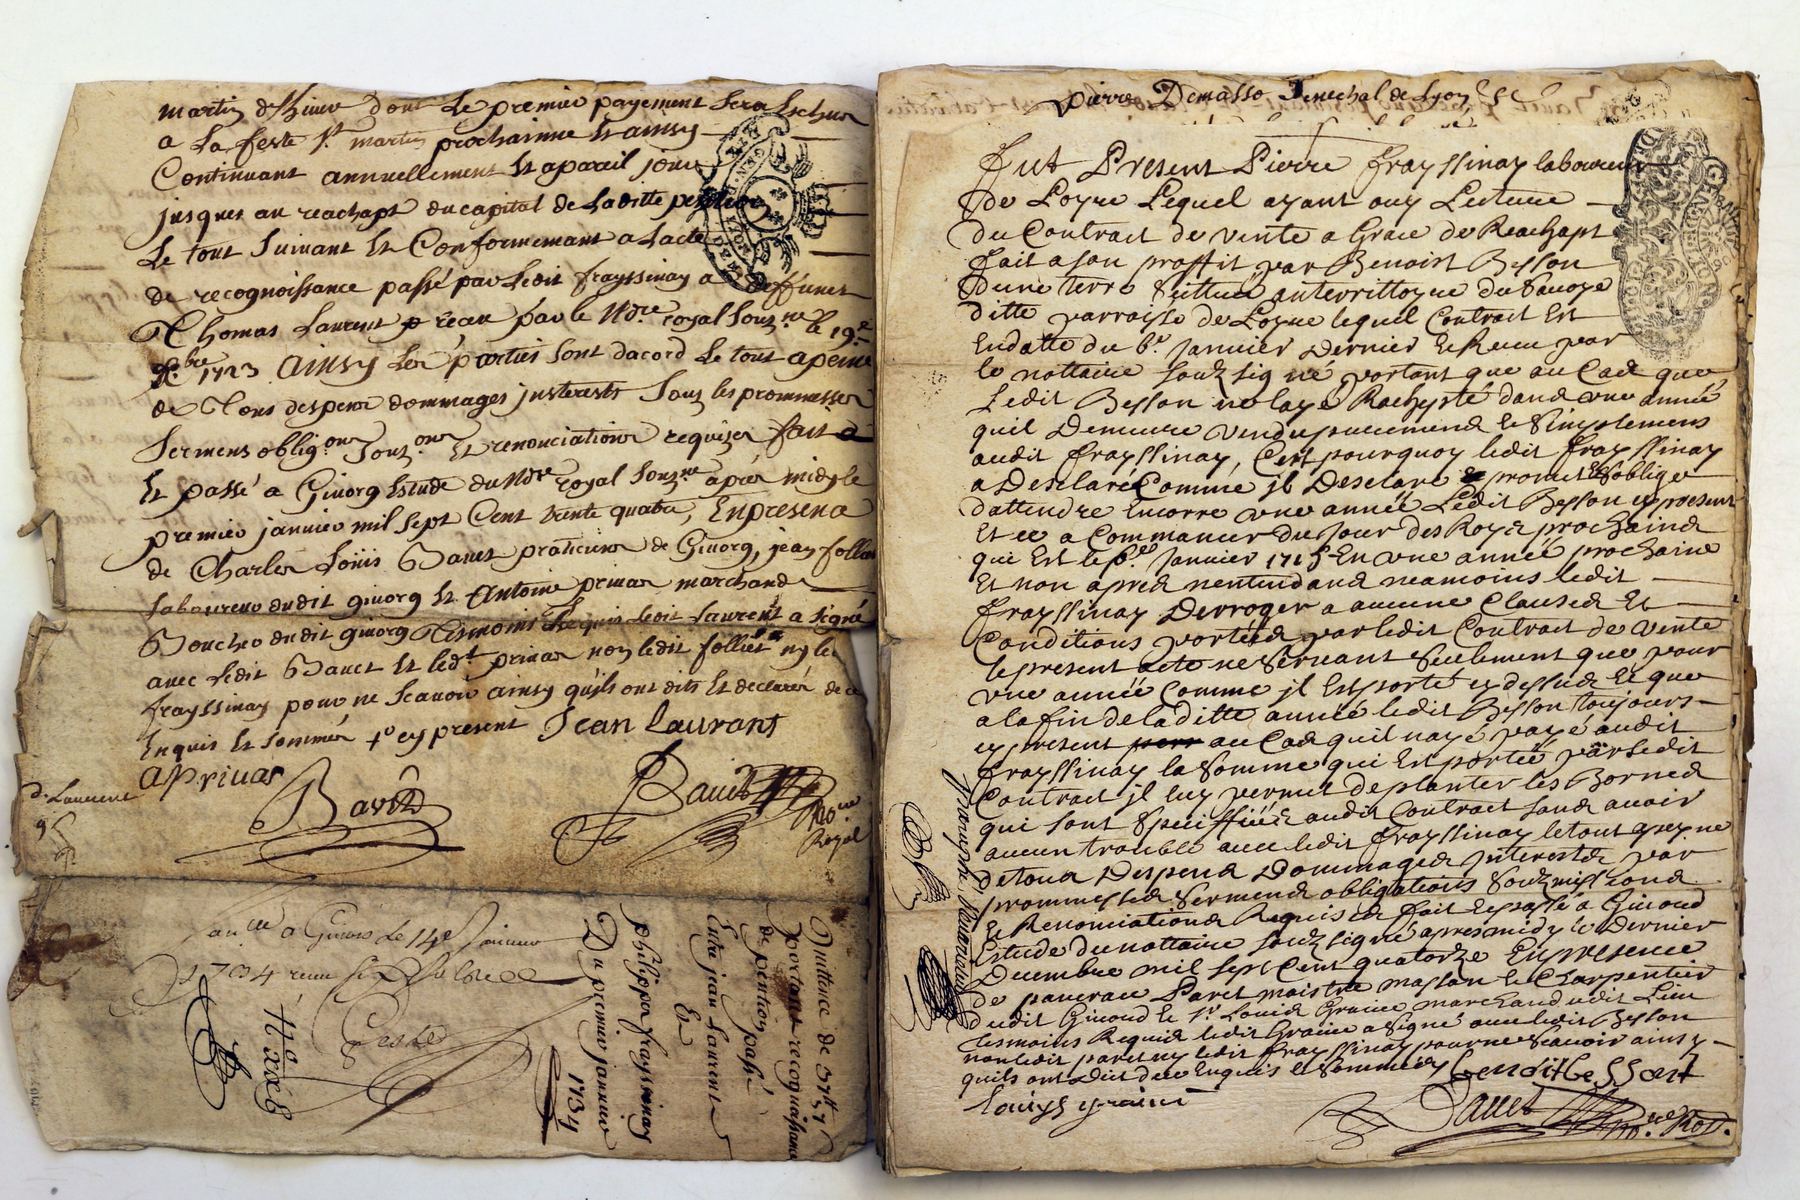 martin d'hiver dont le premier payement sera Escheu
a La feste St. martin prochainne Et ainsy
Continuant annuellement Et apareil jour
jusques au reachapt du capital de Laditte pention
Le tout suivant Et Conformemant a Lacte
de recognoissance passé par Ledit frayssinay a deffunct
Thomas Laurent reçeu par le Nore royal souz.né le 19.e
1723 Ainsy Les parties sont dacord Le tout apeine
de Tous despens dommages justerests Souz les prommesses
Sermens oblig.ons souz.ons Et renonciations requizes fait
Et passé a Givors Estude du Nore royal souz.né aprés midy le
premier janvier mil sept Cent trente quatre, En presence
de Charles Loüis Bavet praticien de Givors, jean follie
Laboureur dudit givors Et Antoine privas marchand
Boucher dudit givors Tesmoins Requis Ledit Laurent a signé
avec Ledit Bavet Et led.t privas non ledit folliet ny le
frayssinay pour ne scavoir ainsy qu'ils ont dits Et declarés de ce
Enquis Et sommés cy present Jean Laurans
A Privas
Bavet
Bavet
No.re
Royal
d. Laurent
a Givors Le 14e Janvier
1734 receu six
Quittence de
portant recognoissance
de pention passé
Entre jean Laurent
Et
philippe frayssinay
Du premier janvier
1734
Pierre Demasso Senechal de Lyon
Fut Present Pierre frayssinay laboureur
de Loyre Lequel ayant ouy Lecture
du Contract de vente a Grace de Reachapt
fait a son proffit par Benoist Besson
Dune terre Scittuee au territtoyre du Sauoye
ditte parroisse de Loyre lequel Contract Est
En datte du 6.e Janvier Dernier et Receu par
le nottaire souz signé portant que au Cas que
Ledit Besson ne laye Rachepté dans une année
quil Demeure vendu purement et simplement
audit frayssinay, Cest pourquoy ledit frayssinay
a Desclaré Comme jl Desclare promet et soblige
dattendre Encorre une année Ledit Besson cy present
Et ce a Commancer du Jour des Roys prochains
qui Est le 6.e Janvier 1715 En une année prochaine
Et non aprés nentendans neamoins ledit
frayssinay Derroger a aucune Clauses Et
Conditions portées par ledit Contract de vente
le present acte ne servant seulement que pour
une année Comme jl Est porté cy dessus Et que
a la fin de laditte année ledit Besson toujours
cy present au Cas quil naye payé audit
frayssinay la somme qui Est portée par ledit
Contract jl luy permet de planter les Bornes
qui sont Speciffiées audit Contract sans avoir
aucun trouble avec ledit frayssinay le tout apeyne
de tous Despens Dommages Interests par
prommesses Sermens obligations Souzmissions
Et Renonciations Requises fait et passé a Givors
Estude du nottaire souz signé apres midy le Dernier
Decembre mil sept Cent quatorze En presence
de pancrace Paret maistre masson et Charpentier
dudit Givors et Sr Louis Graine marchand dudit Lieu
tesmoins Requis ledit Graine a signé avec ledit Besson
non ledit paret ny ledit frayssinay pour ne scavoir ainsy
quils ont Dict de ce Enquis et sommés Benoit Besson
Louys graine
Bavet
No.re Roy.